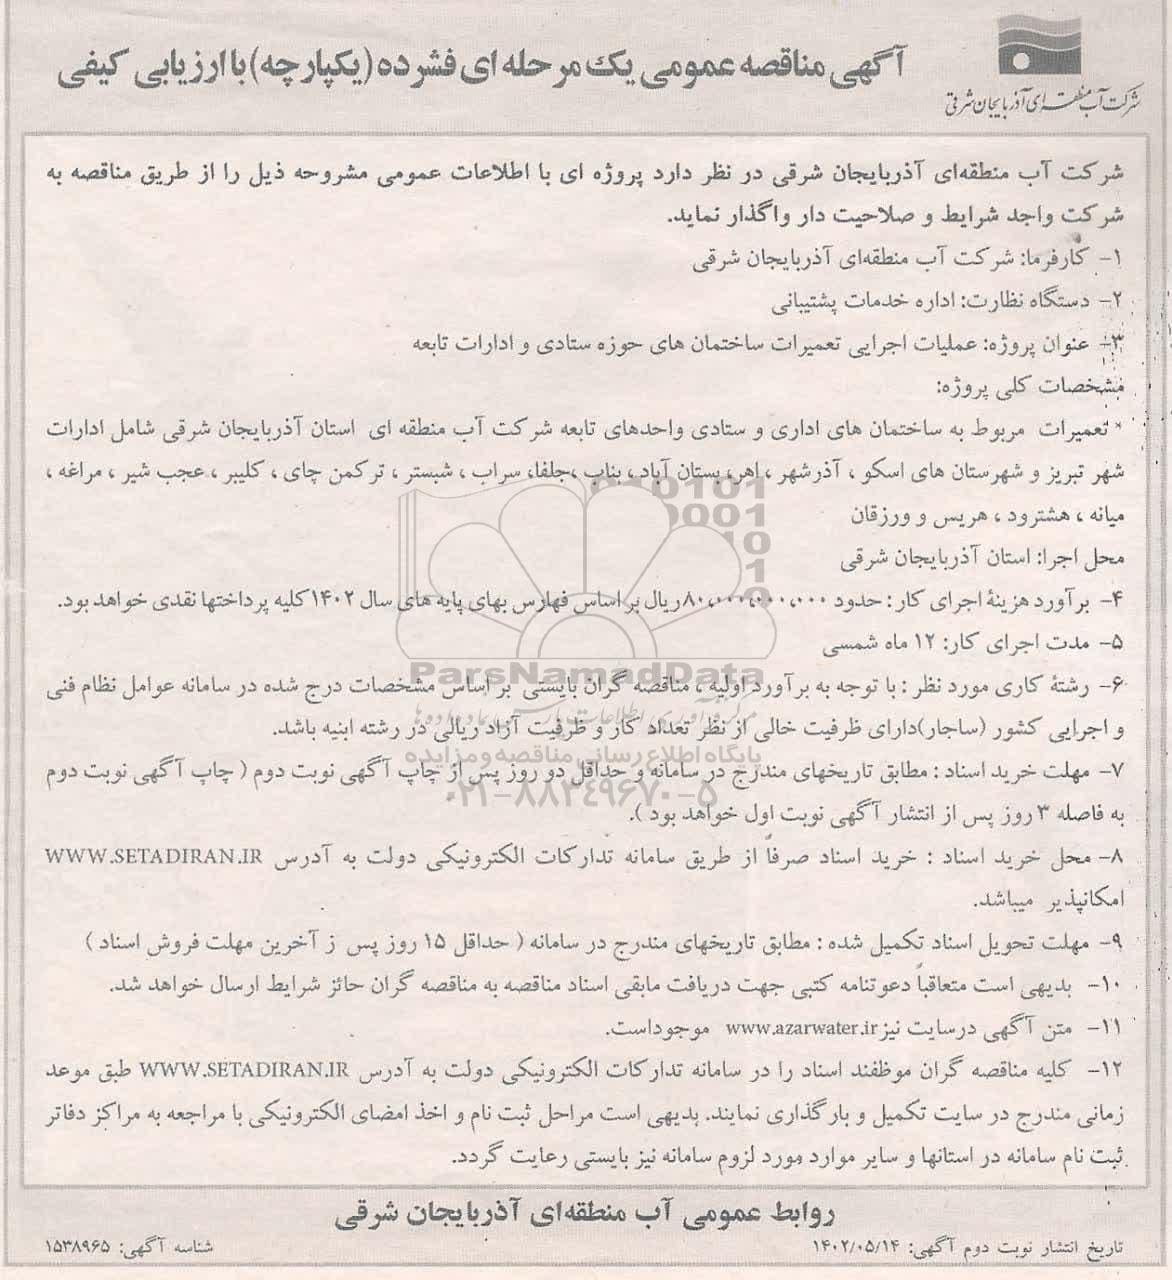 آگهی مناقصه عمومی یک مرحله ای فشرده (یکپارچه) با ارزیابی کیفی
شرکت آب منطقه ای آذربایجان شرقی
شرکت آب منطقه‌ای آذربایجان شرقی در نظر دارد پروژه ای با اطلاعات عمومی مشروحه ذیل را از طریق مناقصه به
شرکت واجد شرایط و صلاحیت دار واگذار نماید.
۱- کارفرما: شرکت آب منطقه‌ای آذربایجان شرقی
۲- دستگاه نظارت: اداره خدمات پشتیبانی
۳- عنوان پروژه: عملیات اجرایی تعمیرات ساختمان های حوزه ستادی و ادارات تابعه
مشخصات کلی پروژه:
* تعمیرات مربوط به ساختمان های اداری و ستادی واحدهای تابعه شرکت آب منطقه ای استان آذربایجان شرقی شامل ادارات
شهر تبریز و شهرستان های اسکو ، آذرشهر ، اهر، بستان آباد ، بناب ،جلفا، سراب ، شبستر ، ترکمن چای ، کلیبر ، عجب شیر ، مراغه ،
میانه ، هشترود ، هریس و ورزقان
محل اجرا: استان آذربایجان شرقی
۴- برآورد هزینهٔ اجرای کار : حدود ۸۰،۰۰۰،۰۰۰،۰۰۰ ریال بر اساس فهارس بهای پایه های سال ۱۴۰۲ کلیه پرداختها نقدی خواهد بود.
۵- مدت اجرای کار: ۱۲ ماه شمسی
۶- رشتهٔ کاری مورد نظر : با توجه به برآورد اولیه ، مناقصه گران بایستی بر اساس مشخصات درج شده در سامانه عوامل نظام فنی
و اجرایی کشور (ساجار)دارای ظرفیت خالی از نظر تعداد کار و ظرفیت آزاد ریالی در رشته ابنیه باشد.
۷- مهلت خرید اسناد : مطابق تاریخهای مندرج در سامانه و حداقل دو روز پس از چاپ آگهی نوبت دوم ( چاپ آگهی نوبت دوم
به فاصله ۳ روز پس از انتشار آگهی نوبت اول خواهد بود ).
۸- محل خرید اسناد : خرید اسناد صرفاً از طریق سامانه تدارکات الکترونیکی دولت به آدرس WWW.SETADIRAN.IR
امکانپذیر میباشد.
۹- مهلت تحویل اسناد تکمیل شده : مطابق تاریخهای مندرج در سامانه ( حداقل ۱۵ روز پس ز آخرین مهلت فروش اسناد )
۱۰- بدیهی است متعاقباً دعوتنامه کتبی جهت دریافت مابقی اسناد مناقصه به مناقصه گران حائز شرایط ارسال خواهد شد.
۱۱- متن آگهی درسایت نیز www.azarwater.ir موجوداست.
۱۲- کلیه مناقصه گران موظفند اسناد را در سامانه تدارکات الکترونیکی دولت به آدرس WWW.SETADIRAN.IR طبق موعد
زمانی مندرج در سایت تکمیل و بارگذاری نمایند. بدیهی است مراحل ثبت نام و اخذ امضای الکترونیکی با مراجعه به مراکز دفاتر
ثبت نام سامانه در استانها و سایر موارد مورد لزوم سامانه نیز بایستی رعایت گردد.
روابط عمومی آب منطقه‌ای آذربایجان شرقی
تاریخ انتشار نوبت دوم آگهی: ۱۴۰۲/۰۵/۱۴
شناسه آگهی: ۱۵۳۸۹۶۵
ParsNamadData
پایگاه اطلاع رسانی مناقصه و مزایده
۰۲۱-۸۸۳۴۹۶۷۰-۵